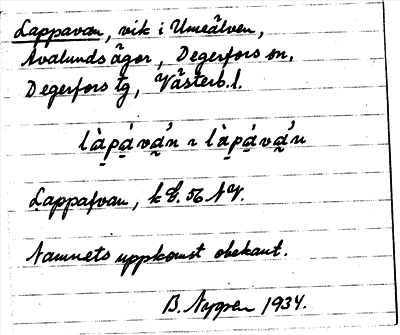 Lappavan, vik i Umeälven,
Avalunds ägor, Degerfors sn.
Degerfors tg, Västerb. l.
Lappafvan, k 56 NV.
Namnets uppkomst obekant.
B. Nygren 1934.